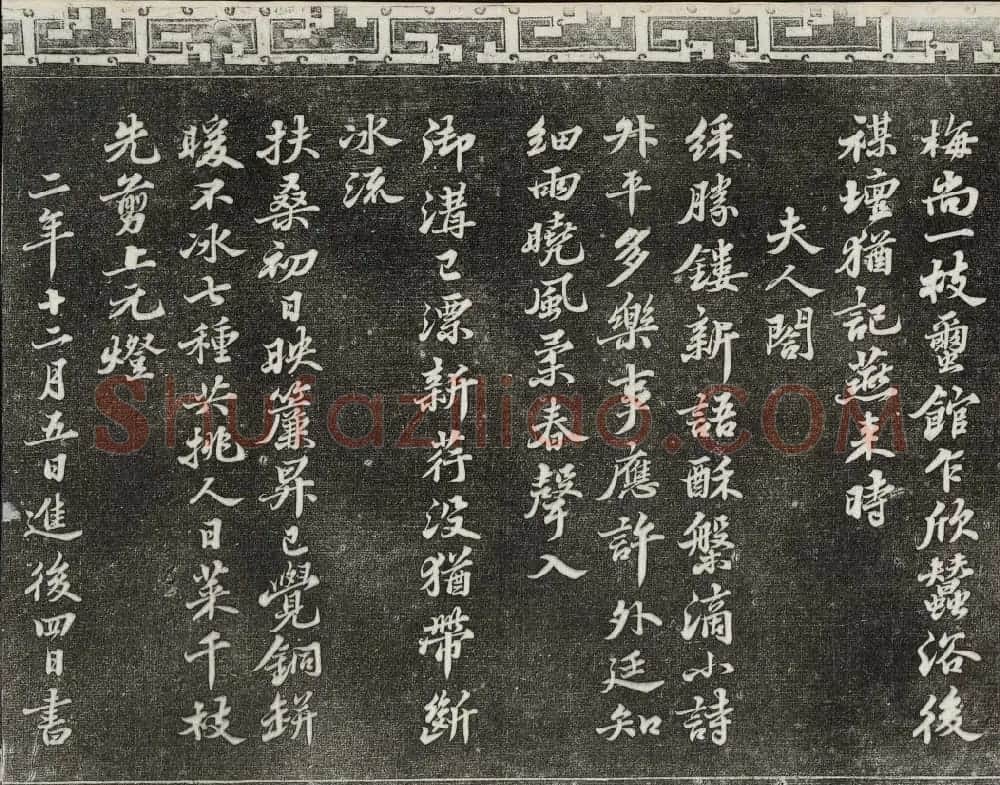 梅尚一枝蠶館乍欣蠶浴後
禖壇猶記燕来時
夫人閤
綵勝鏤新語酥槃滴小詩
外平多樂事應許外廷知
细雨曉風柔春聲入
御溝已漂新荇没猶帶斷
冰流
扶桑初日映簾昇已覺銅缾
暖不冰七種共挑人日菜千枝
先剪上元燈
二年十二月五日進後四日書
Shufaziliao.COM